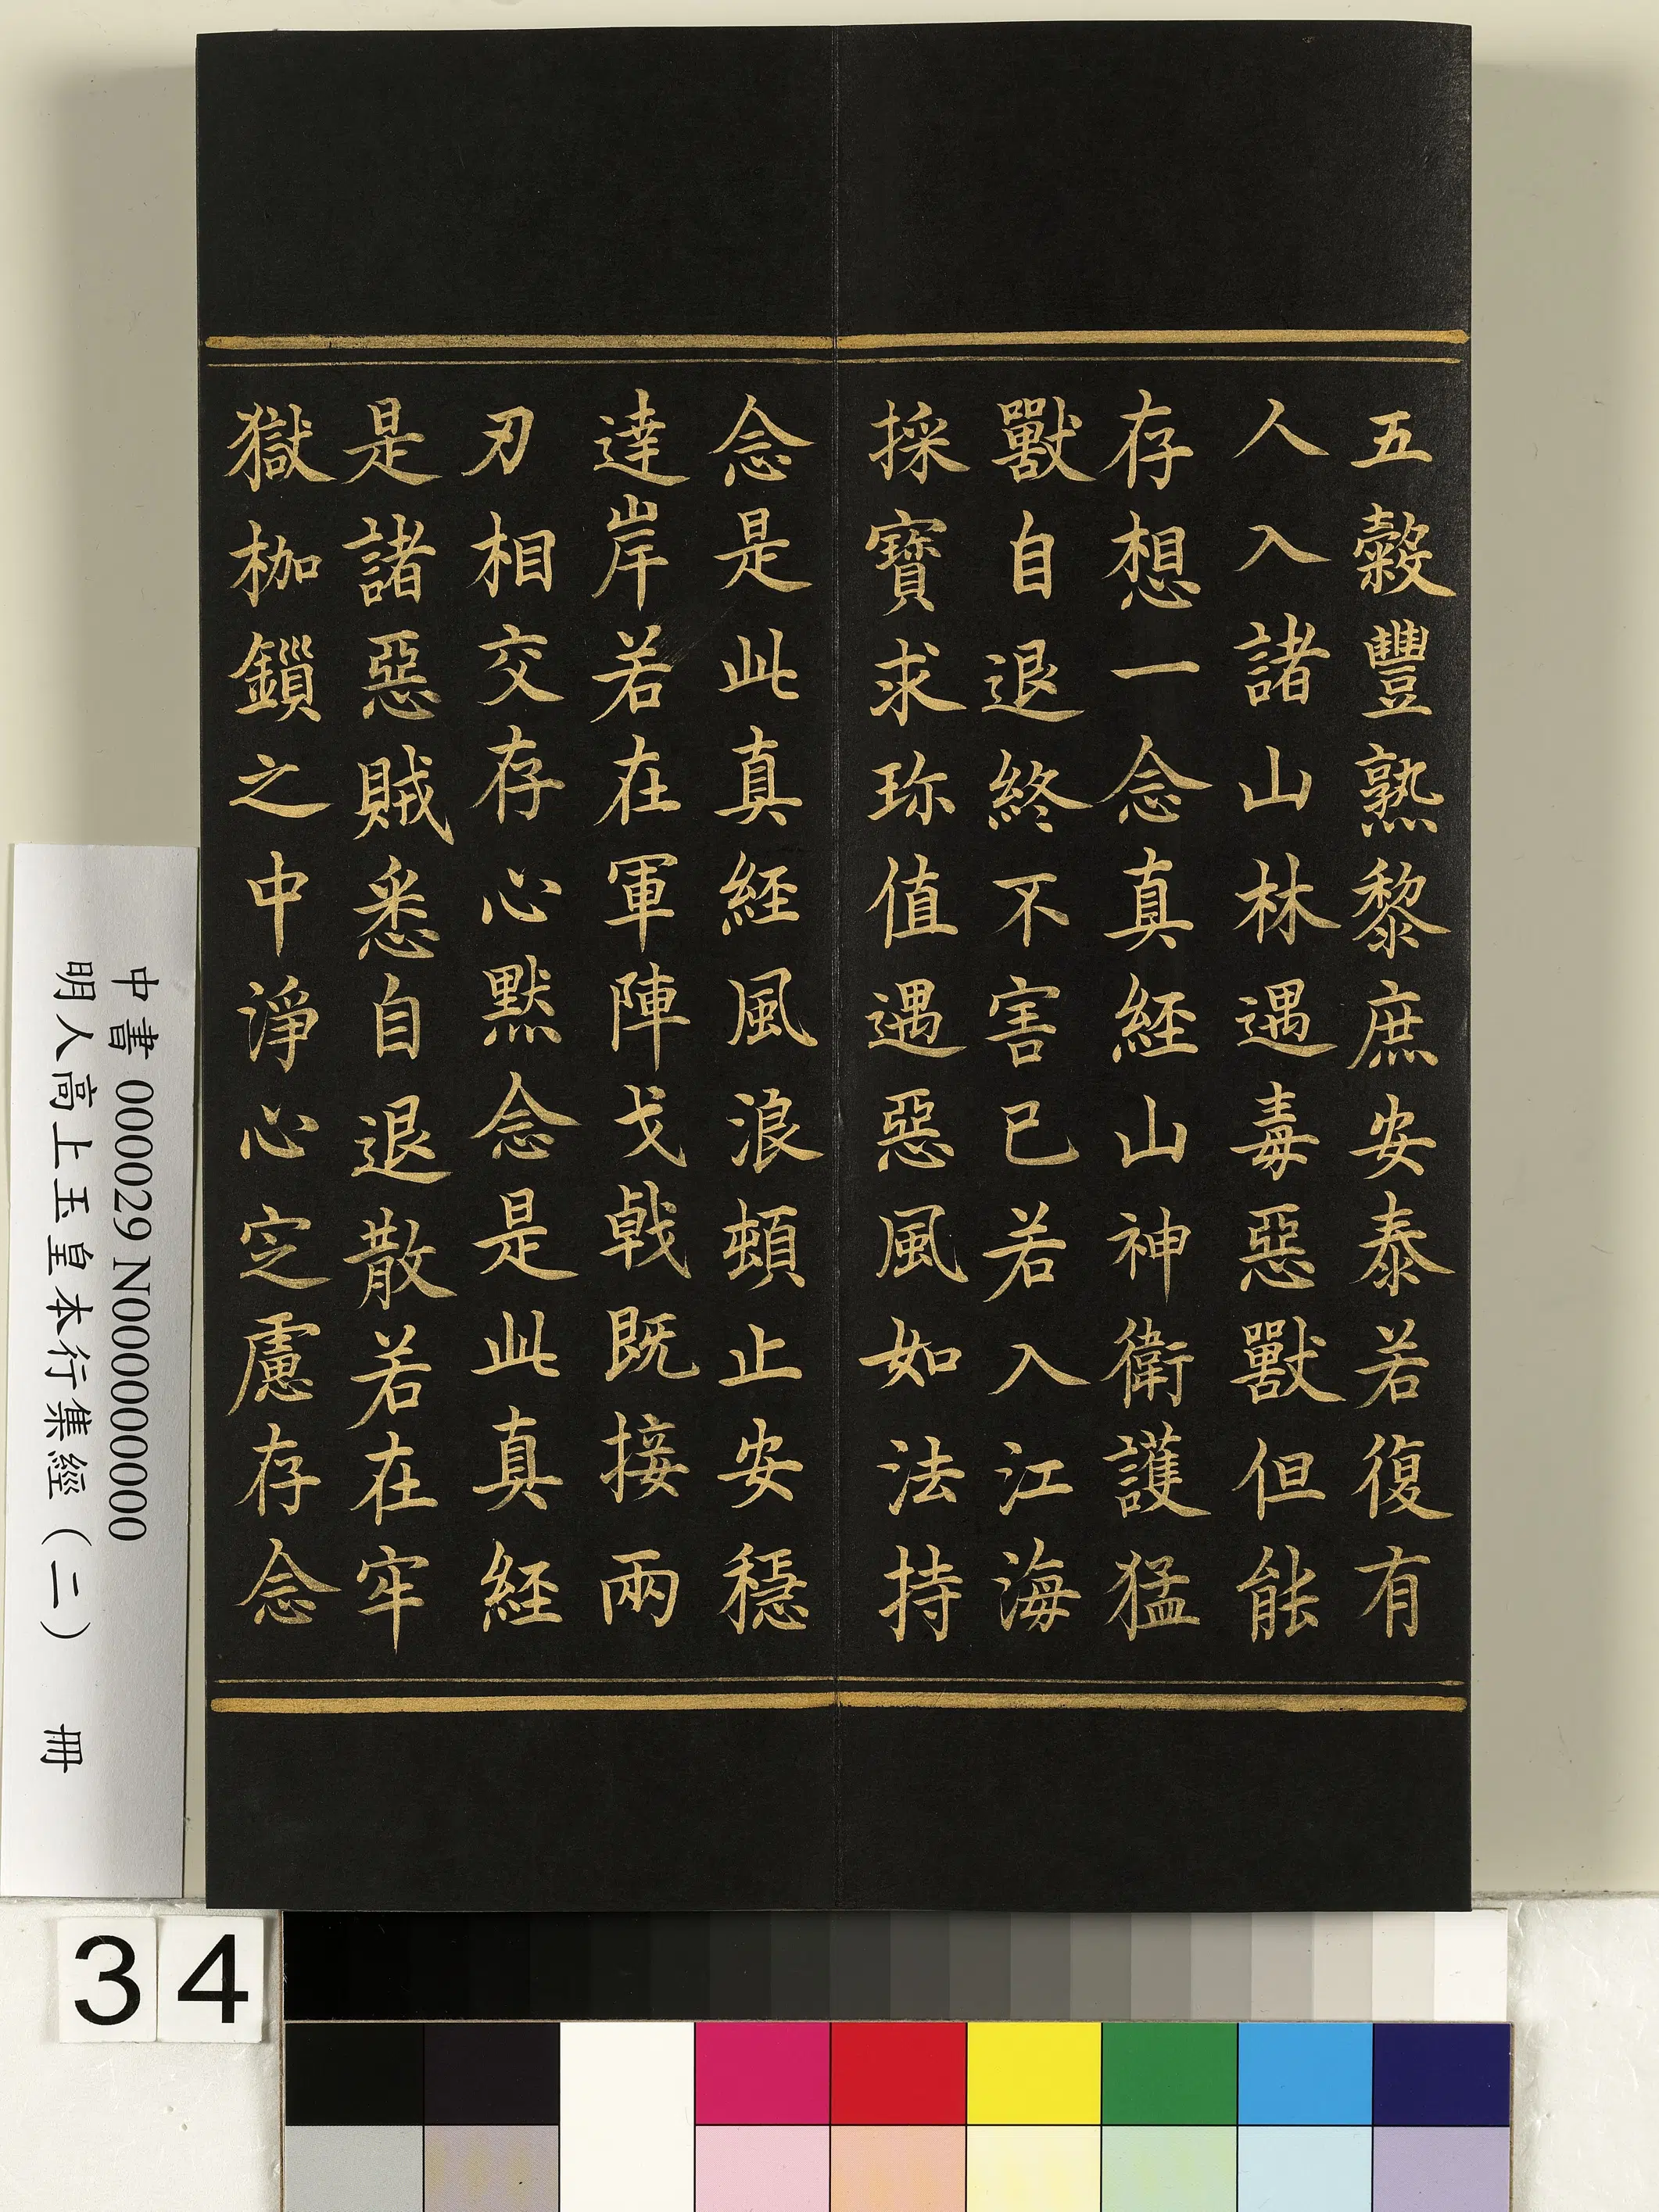 五穀豐熟黎庶安泰若復有
人入諸山林遇毒惡獸但能
存想一念真經山神衛護猛
獸自退終不害已若入江海
採寶求珎值遇惡風如法持
念是此真經風浪頓止安穩
達岸若在軍陣戈戟既接兩
刃相交存心默念是此真經
是諸惡賊悉自退散若在牢
獄枷鎖之中淨心定慮存念
中書 000029 N000000000
明人高上玉皇本行集經（二） 冊
34